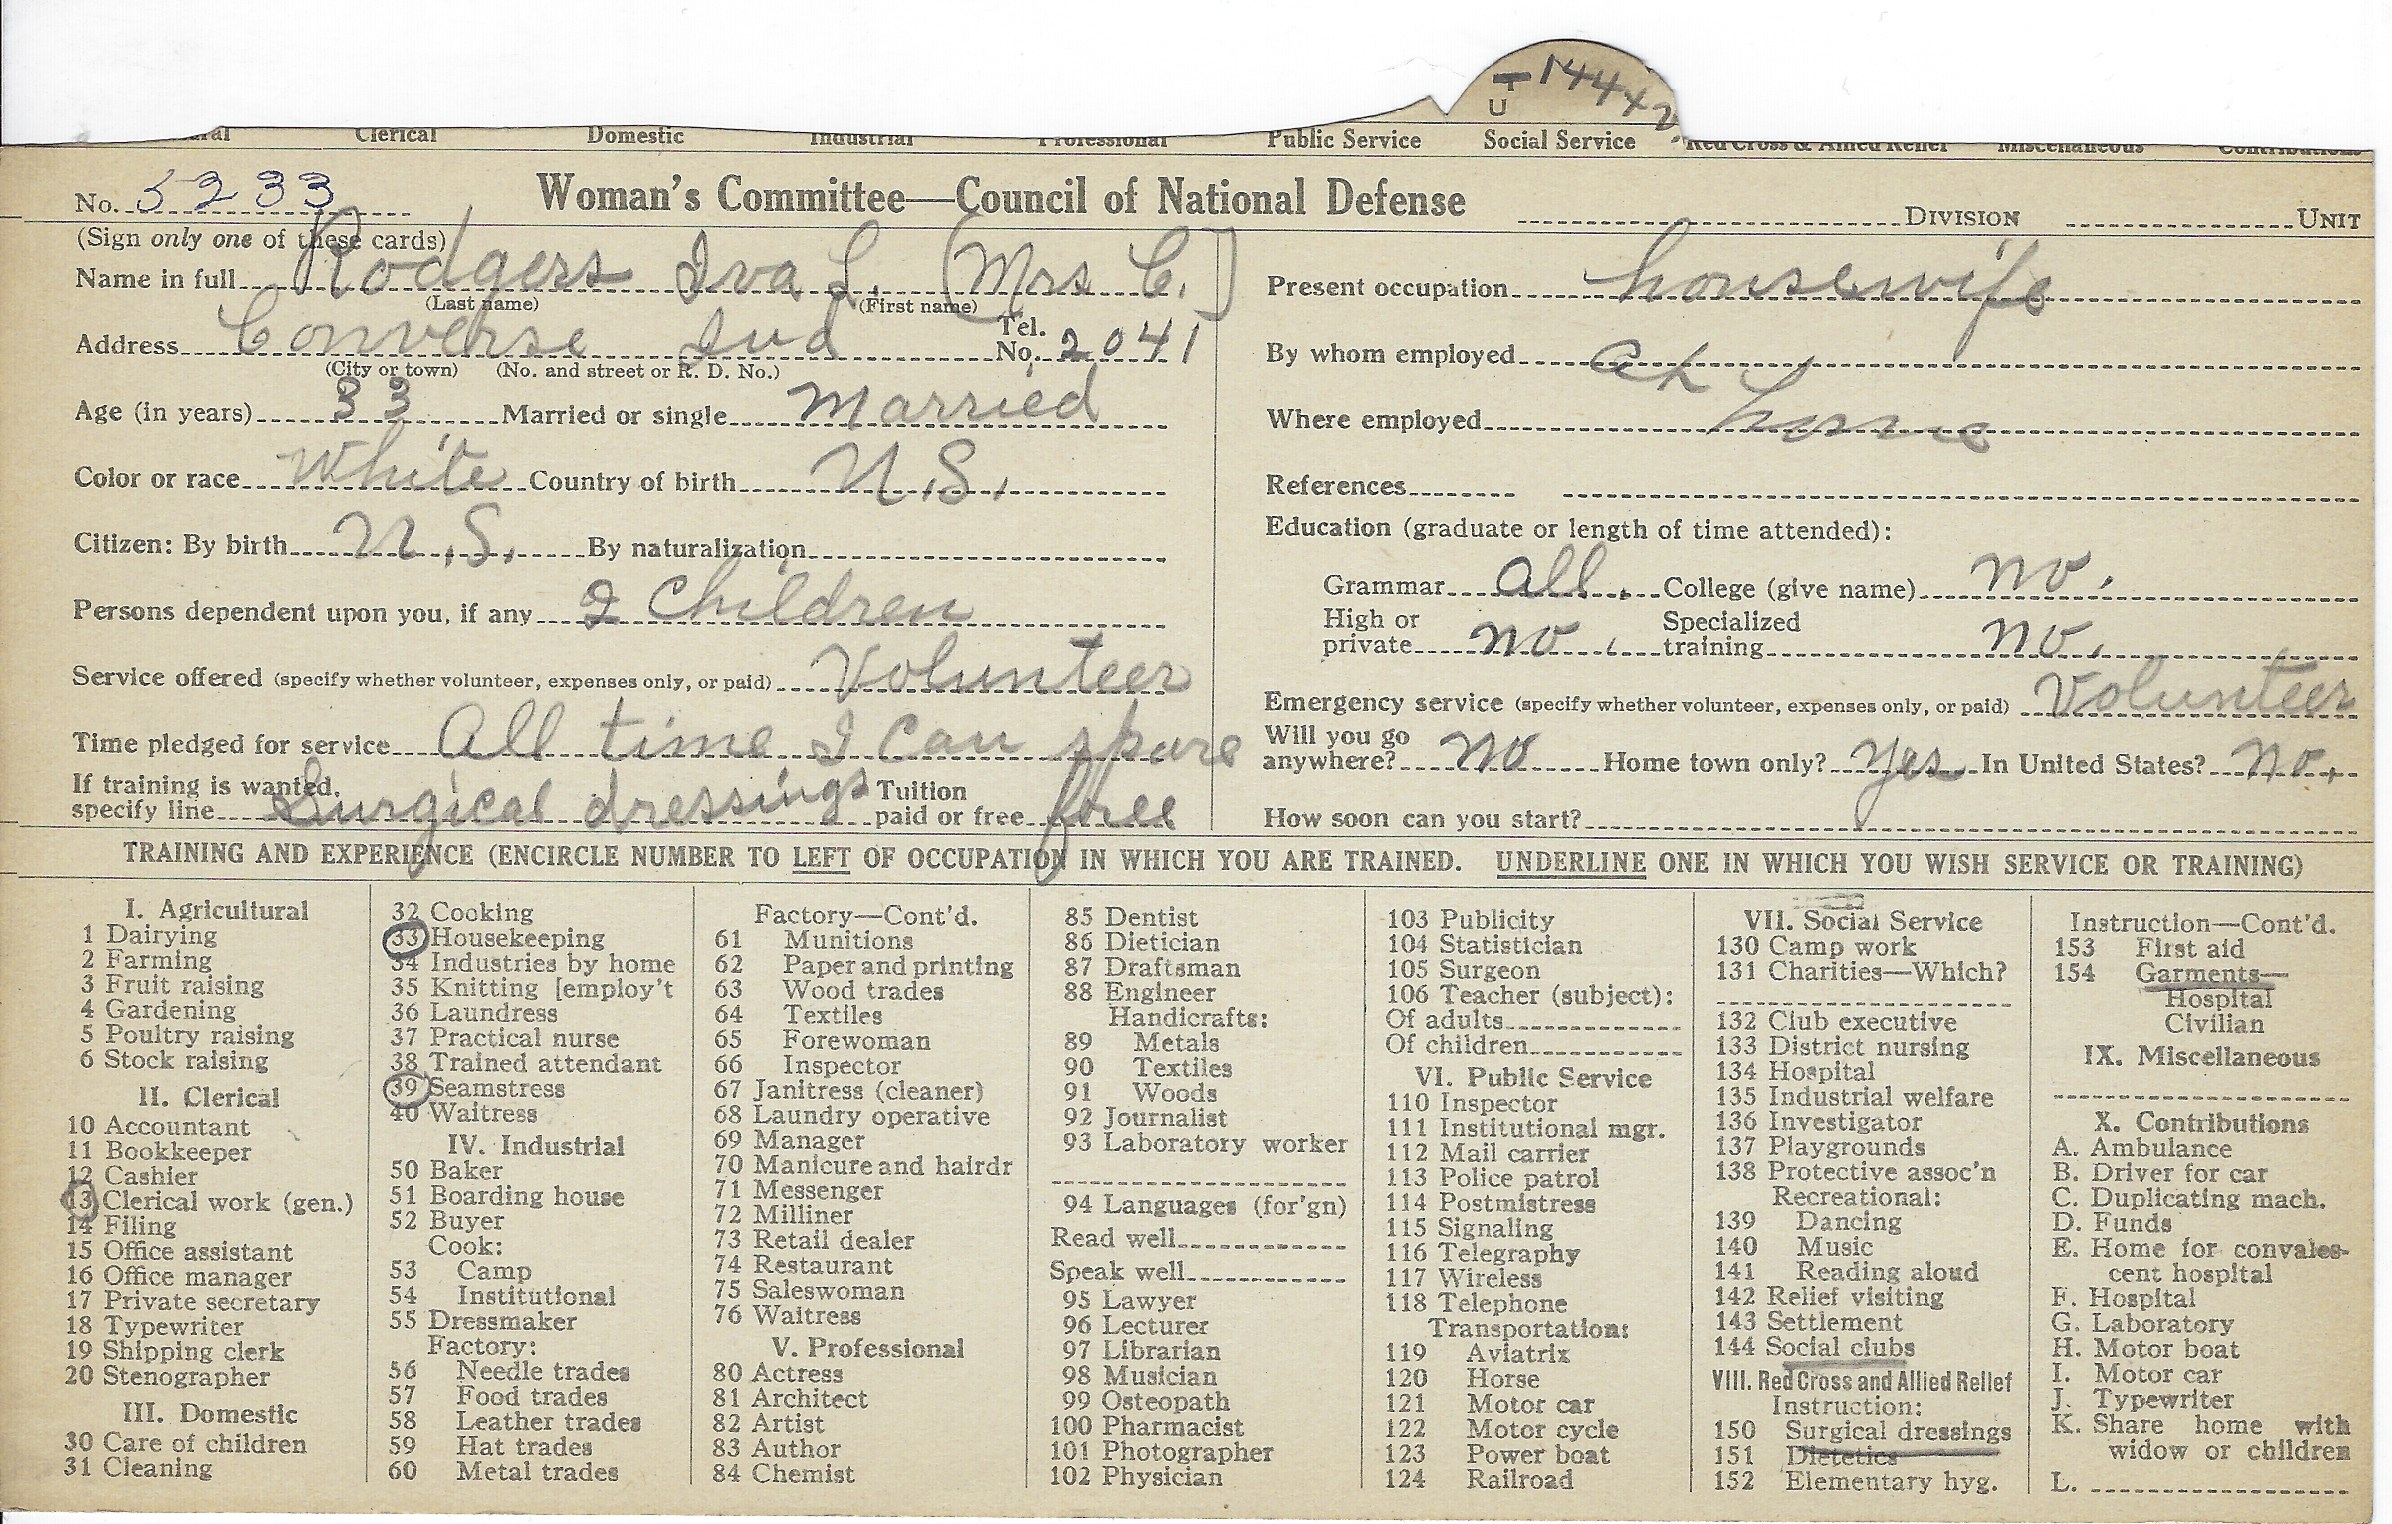 U T 144 x 2
Clerical Domestic Industrial Professional Public Service Social Service Red Cross & Allied Relief Miscellaneous Contributions
No. 5233 Woman's Committee—Council of National Defense DIVISION UNIT
(Sign only one of these cards)
Name in full Rodgers Iva L. (Mrs C.)
(Last name) (First name)
Address Converse Ind Tel. No. 2041
(City or town) (No. and street or R. D. No.)
Age (in years) 33 Married or single Married
Color or race White Country of birth U.S.
Citizen: By birth U.S. By naturalization
Persons dependent upon you, if any 2 Children
Service offered (specify whether volunteer, expenses only, or paid) Volunteer
Time pledged for service All time I can spare
If training is wanted, specify line Surgical dressings Tuition paid or free free
Present occupation housewife
By whom employed at
Where employed home
References
Education (graduate or length of time attended):
Grammar all. College (give name) no.
High or private no. Specialized training no.
Emergency service (specify whether volunteer, expenses only, or paid) Volunteer
Will you go anywhere? no Home town only? yes In United States? no.
How soon can you start?
TRAINING AND EXPERIENCE (ENCIRCLE NUMBER TO LEFT OF OCCUPATION IN WHICH YOU ARE TRAINED. UNDERLINE ONE IN WHICH YOU WISH SERVICE OR TRAINING)
I. Agricultural
1 Dairying
2 Farming
3 Fruit raising
4 Gardening
5 Poultry raising
6 Stock raising
II. Clerical
10 Accountant
11 Bookkeeper
12 Cashier
13 Clerical work (gen.)
14 Filing
15 Office assistant
16 Office manager
17 Private secretary
18 Typewriter
19 Shipping clerk
20 Stenographer
III. Domestic
30 Care of children
31 Cleaning
32 Cooking
33 Housekeeping
34 Industries by home
35 Knitting [employ't
36 Laundress
37 Practical nurse
38 Trained attendant
39 Seamstress
40 Waitress
IV. Industrial
50 Baker
51 Boarding house
52 Buyer
Cook:
53 Camp
54 Institutional
55 Dressmaker
Factory:
56 Needle trades
57 Food trades
58 Leather trades
59 Hat trades
60 Metal trades
Factory—Cont'd.
61 Munitions
62 Paper and printing
63 Wood trades
64 Textiles
65 Forewoman
66 Inspector
67 Janitress (cleaner)
68 Laundry operative
69 Manager
70 Manicure and hairdr
71 Messenger
72 Milliner
73 Retail dealer
74 Restaurant
75 Saleswoman
76 Waitress
V. Professional
80 Actress
81 Architect
82 Artist
83 Author
84 Chemist
85 Dentist
86 Dietician
87 Draftsman
88 Engineer
Handicrafts:
89 Metals
90 Textiles
91 Woods
92 Journalist
93 Laboratory worker
94 Languages (for'gn)
Read well
Speak well
95 Lawyer
96 Lecturer
97 Librarian
98 Musician
99 Osteopath
100 Pharmacist
101 Photographer
102 Physician
103 Publicity
104 Statistician
105 Surgeon
106 Teacher (subject):
Of adults
Of children
VI. Public Service
110 Inspector
111 Institutional mgr.
112 Mail carrier
113 Police patrol
114 Postmistress
115 Signaling
116 Telegraphy
117 Wireless
118 Telephone
Transportation:
119 Aviatrix
120 Horse
121 Motor car
122 Motor cycle
123 Power boat
124 Railroad
VII. Social Service
130 Camp work
131 Charities—Which?
132 Club executive
133 District nursing
134 Hospital
135 Industrial welfare
136 Investigator
137 Playgrounds
138 Protective assoc'n
Recreational:
139 Dancing
140 Music
141 Reading aloud
142 Relief visiting
143 Settlement
144 Social clubs
VIII. Red Cross and Allied Relief
Instruction:
150 Surgical dressings
151 Dietetics
152 Elementary hyg.
Instruction—Cont'd.
153 First aid
154 Garments—
Hospital
Civilian
IX. Miscellaneous
X. Contributions
A. Ambulance
B. Driver for car
C. Duplicating mach.
D. Funds
E. Home for convales-
cent hospital
F. Hospital
G. Laboratory
H. Motor boat
I. Motor car
J. Typewriter
K. Share home with
widow or children
L.